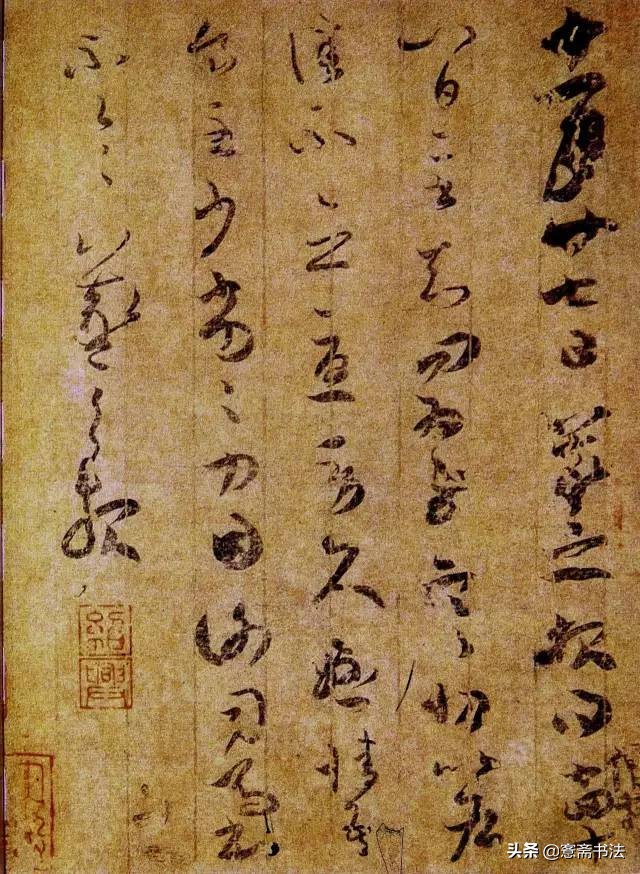 十一月廿七日羲之報得十四十
八日二書知問為慰寒切比各
佳不念憂勞久懸情吾
食至少劣劣力因謝司馬書
不一一羲之報
紹興
头条 @愙斋书法